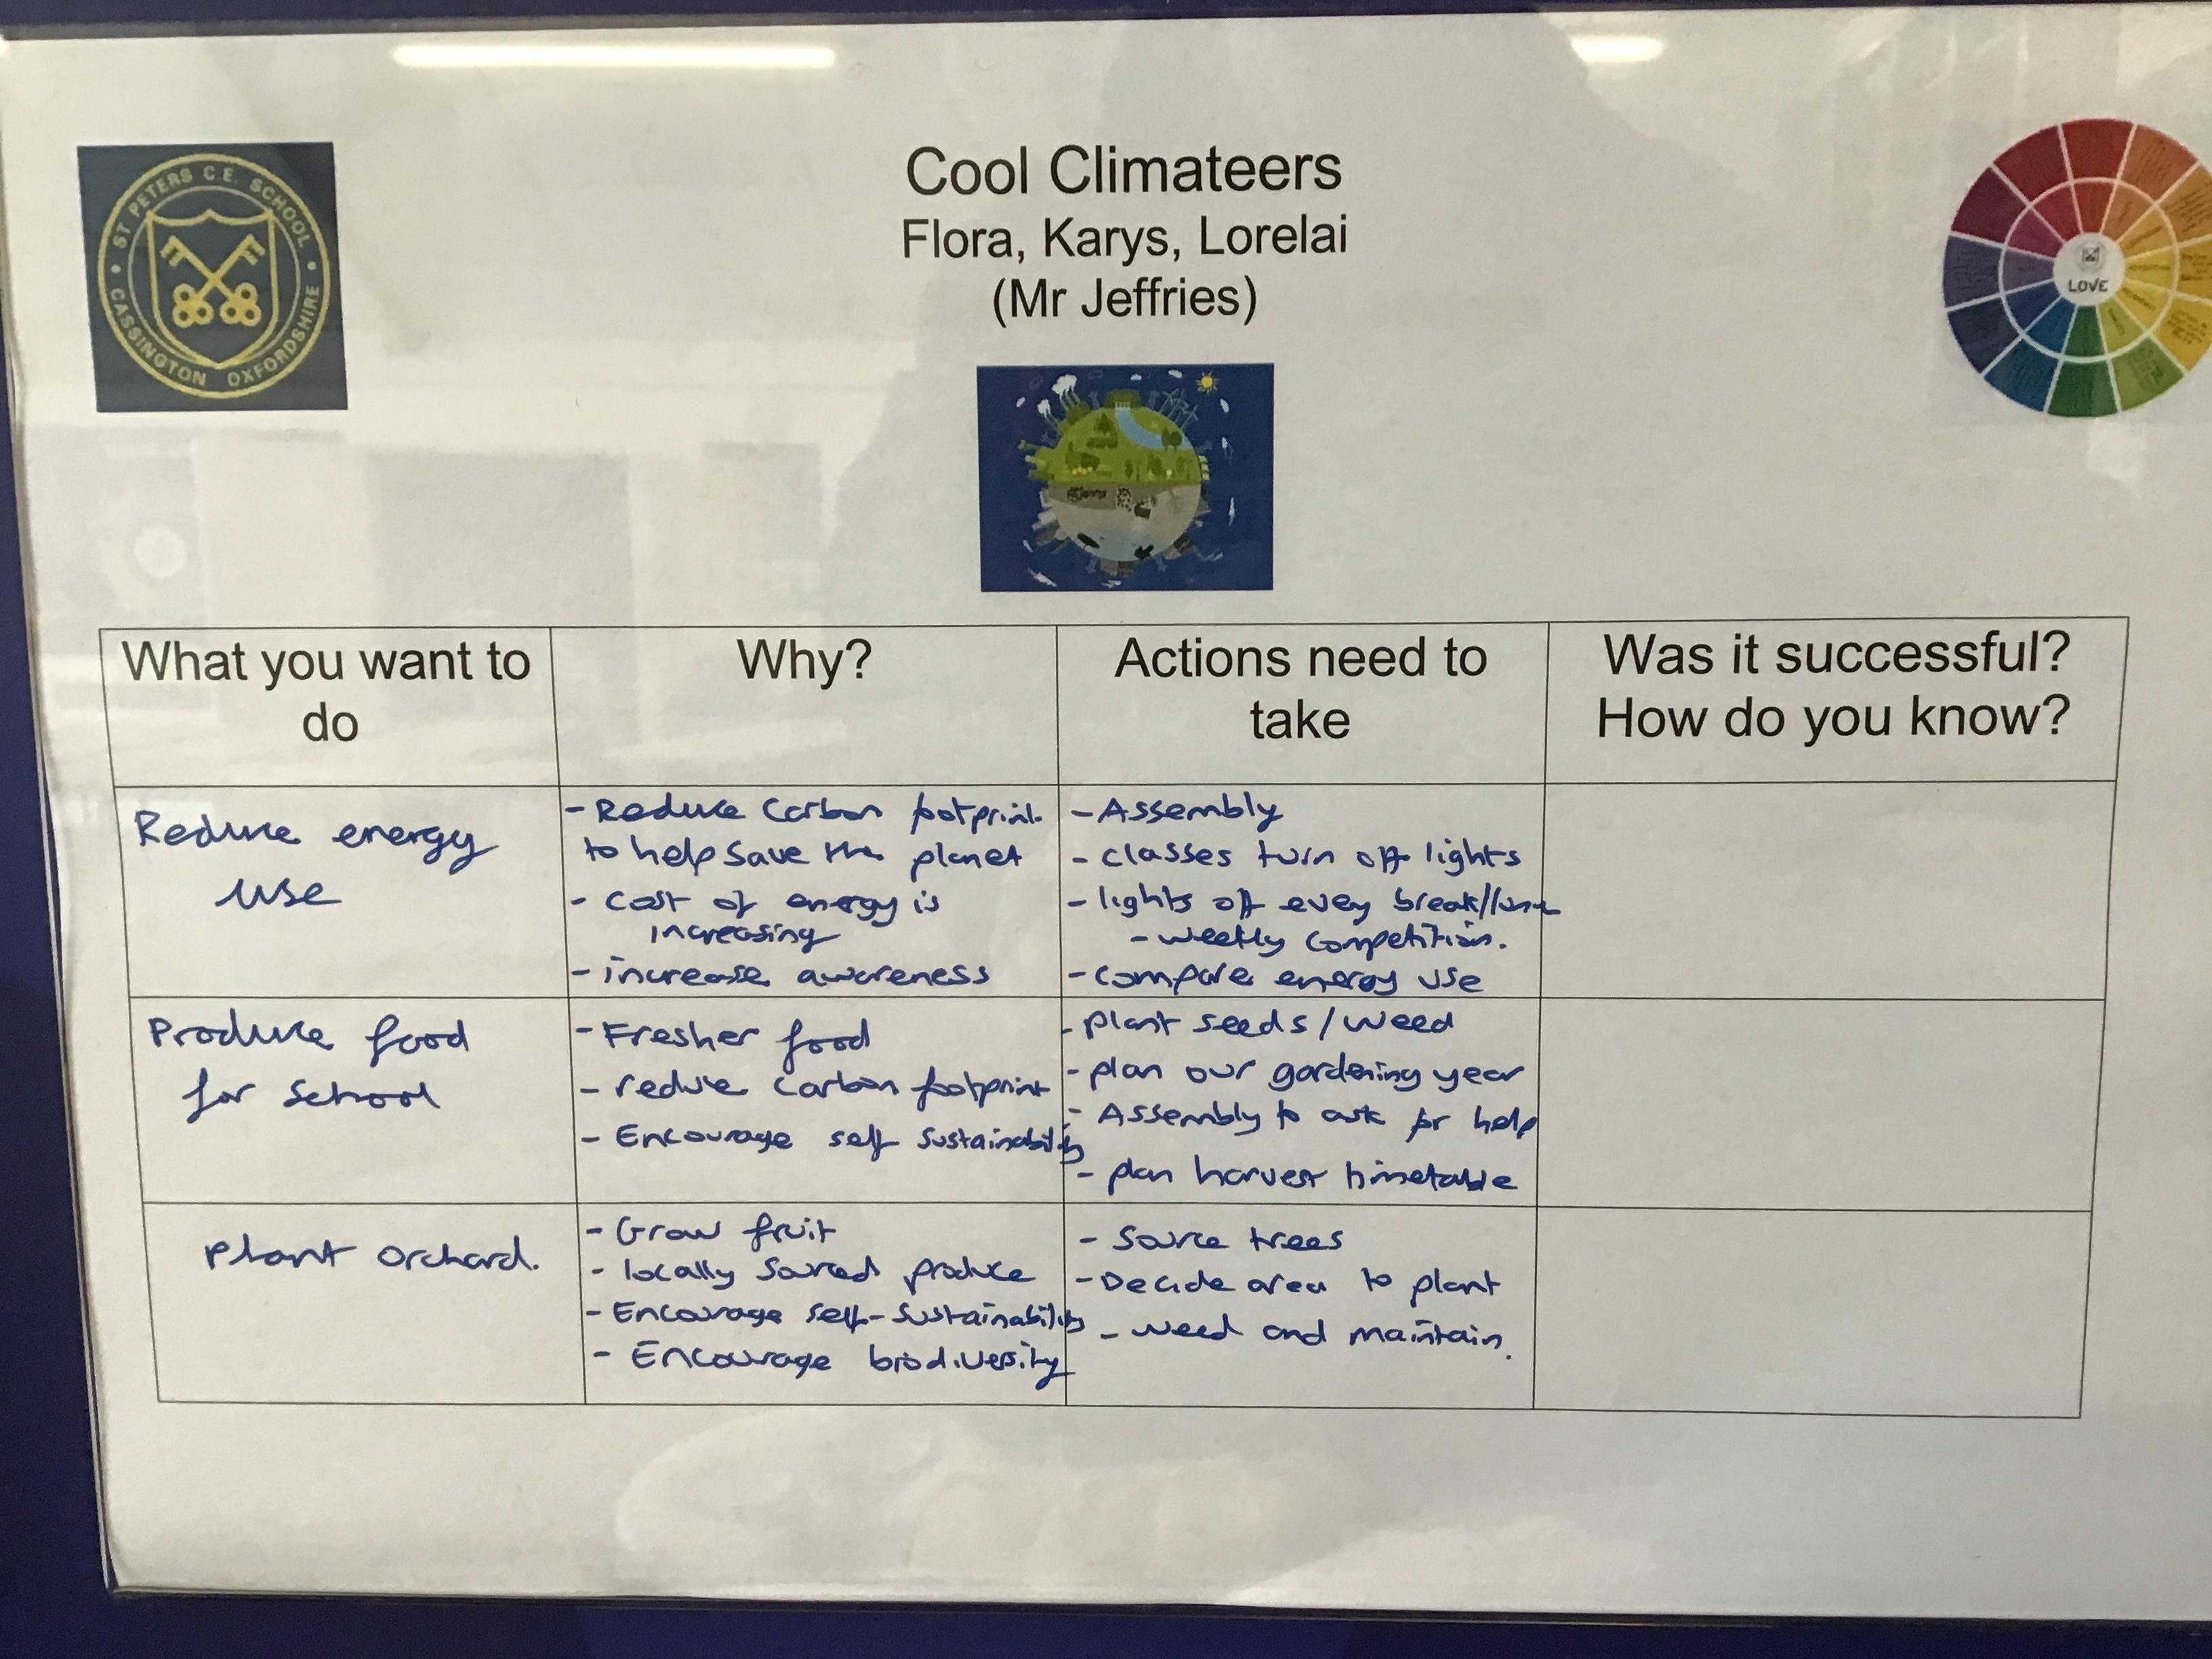 ST PETERS C.E. SCHOOL
CASSINGTON OXFORDSHIRE
Cool Climateers
Flora, Karys, Lorelai
(Mr Jeffries)
LOVE
What you want to
do
Why?
Actions need to
take
Was it successful?
How do you know?
Reduce energy
use
- Reduce Carbon footprint
to help save the planet
- cost of energy is
increasing
- increase awareness
- Assembly
- classes turn off lights
- lights off every break/lunch
- weekly competition.
- compare energy use
Produce food
for school
- Fresher food
- reduce carbon footprint
- Encourage self sustainability
- plant seeds / weed
- plan our gardening year
- Assembly to ask for help
- plan harvest timetable
Plant orchard.
- Grow fruit
- locally sourced produce
- Encourage self-sustainability
- Encourage biodiversity
- Source trees
- Decide area to plant
- weed and maintain.